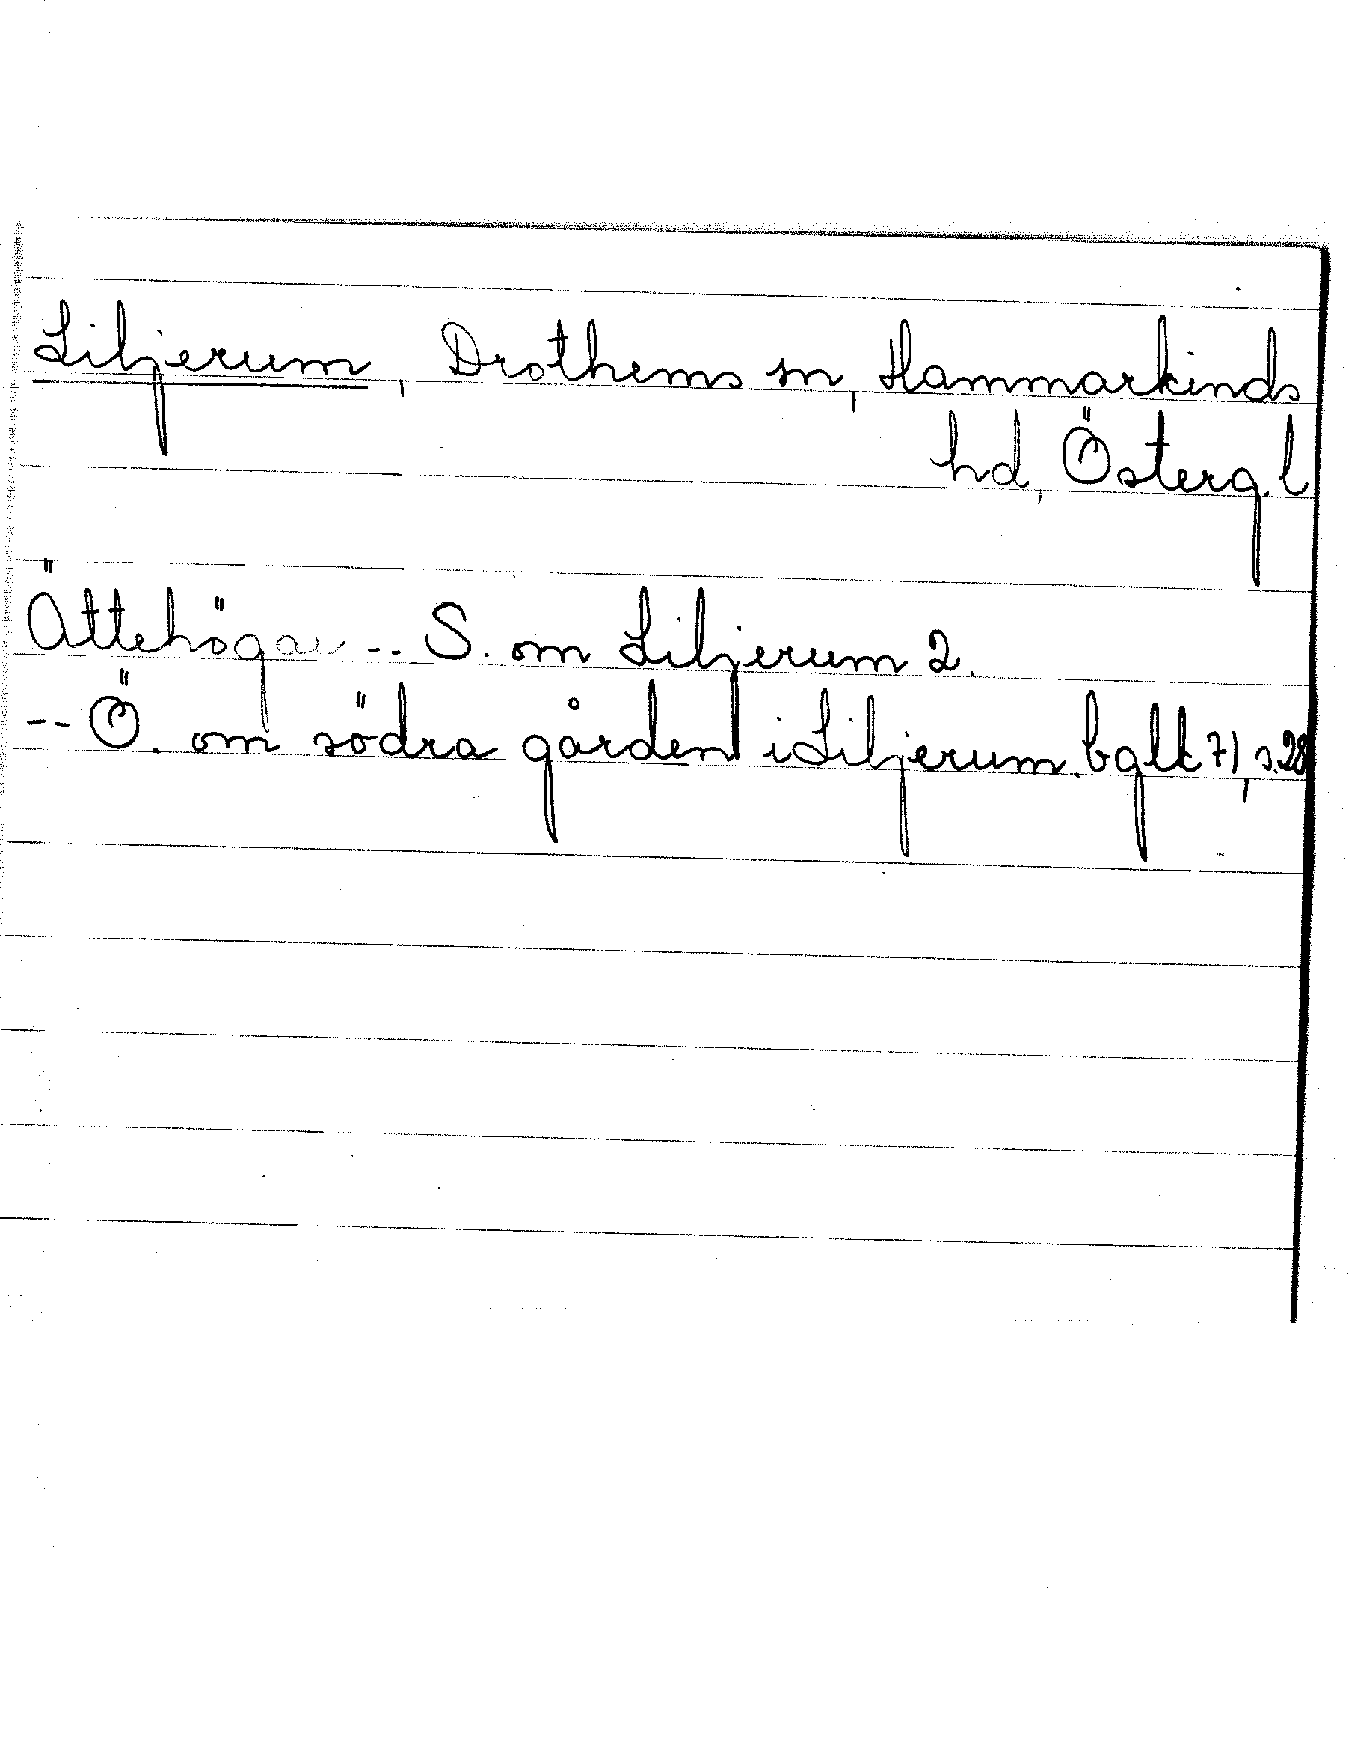 Liljerum, Drothems sn, Hammarkinds
hd, Österg. l
Ättehögar -- S. om Liljerum 2.
-- Ö. om södra gården i Liljerum. bglt 71, s. 28